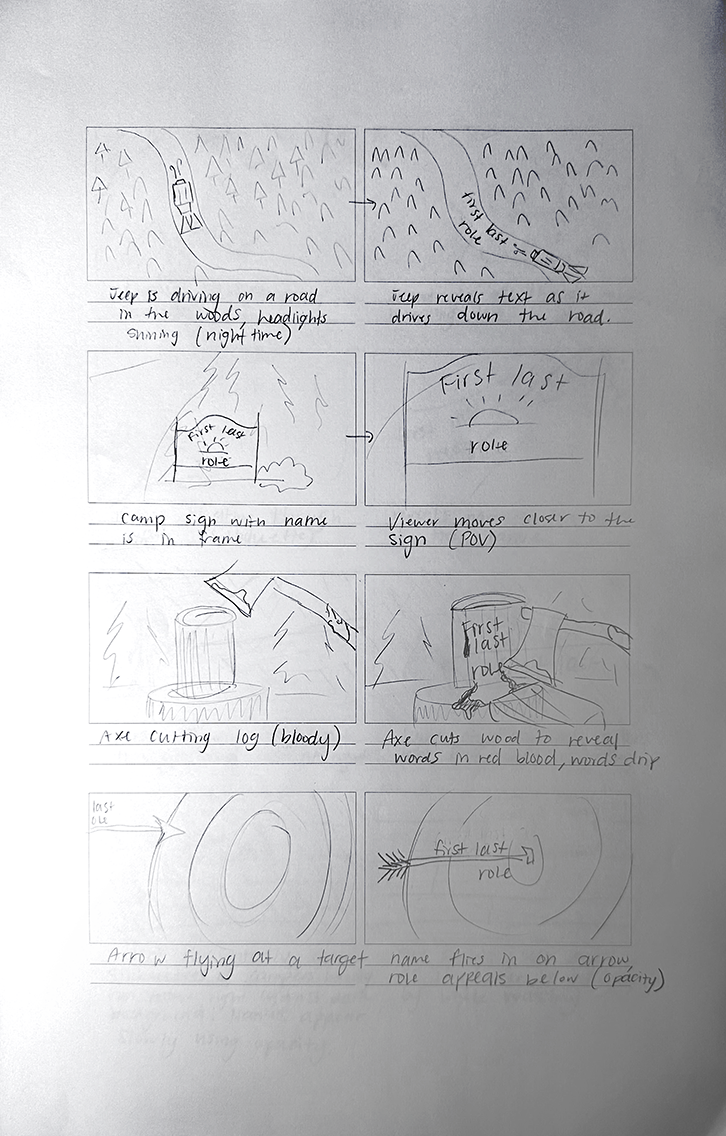 First last
role
Jeep is driving on a road
in the woods, headlights
shining (night time)
Jeep reveals text as it
drives down the road.
First last
role
First last
role
Camp sign with name
is in frame
Viewer moves closer to the
sign (POV)
First
last
role
Axe cutting log (bloody)
Axe cuts wood to reveal
words in red blood, words drip
last
ole
first last
role
Arrow flying at a target
name flies in on arrow,
role appeals below (opacity)